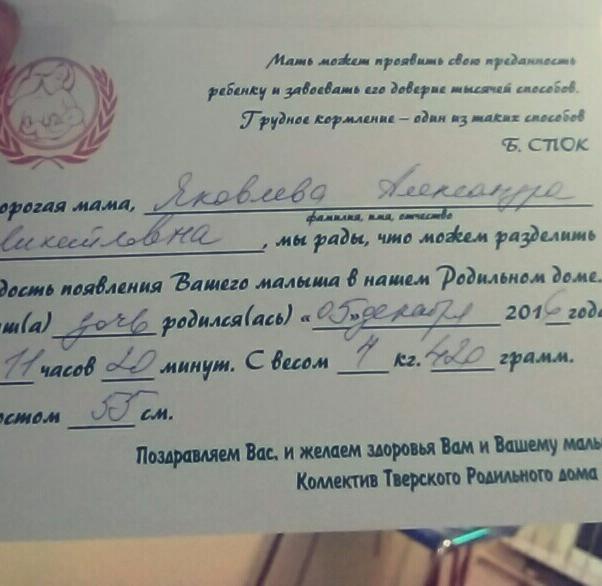 Мать может проявить свою преданность
ребенку и завоевать его доверие тысячей способов.
Грудное кормление – один из таких способов
Б. СПОК
орогая мама, Яковлева Александра
фамилия, имя, отчество
икайловна, мы рады, что можем разделить
дость появления Вашего малыша в нашем Родильном доме.
ш(а) дочь родился(ась) «05» декабря 2016 года
11 часов 20 минут. С весом 4 кг. 420 грамм.
остом 55 см.
Поздравляем Вас, и желаем здоровья Вам и Вашему малы
Коллектив Тверского Родильного дома